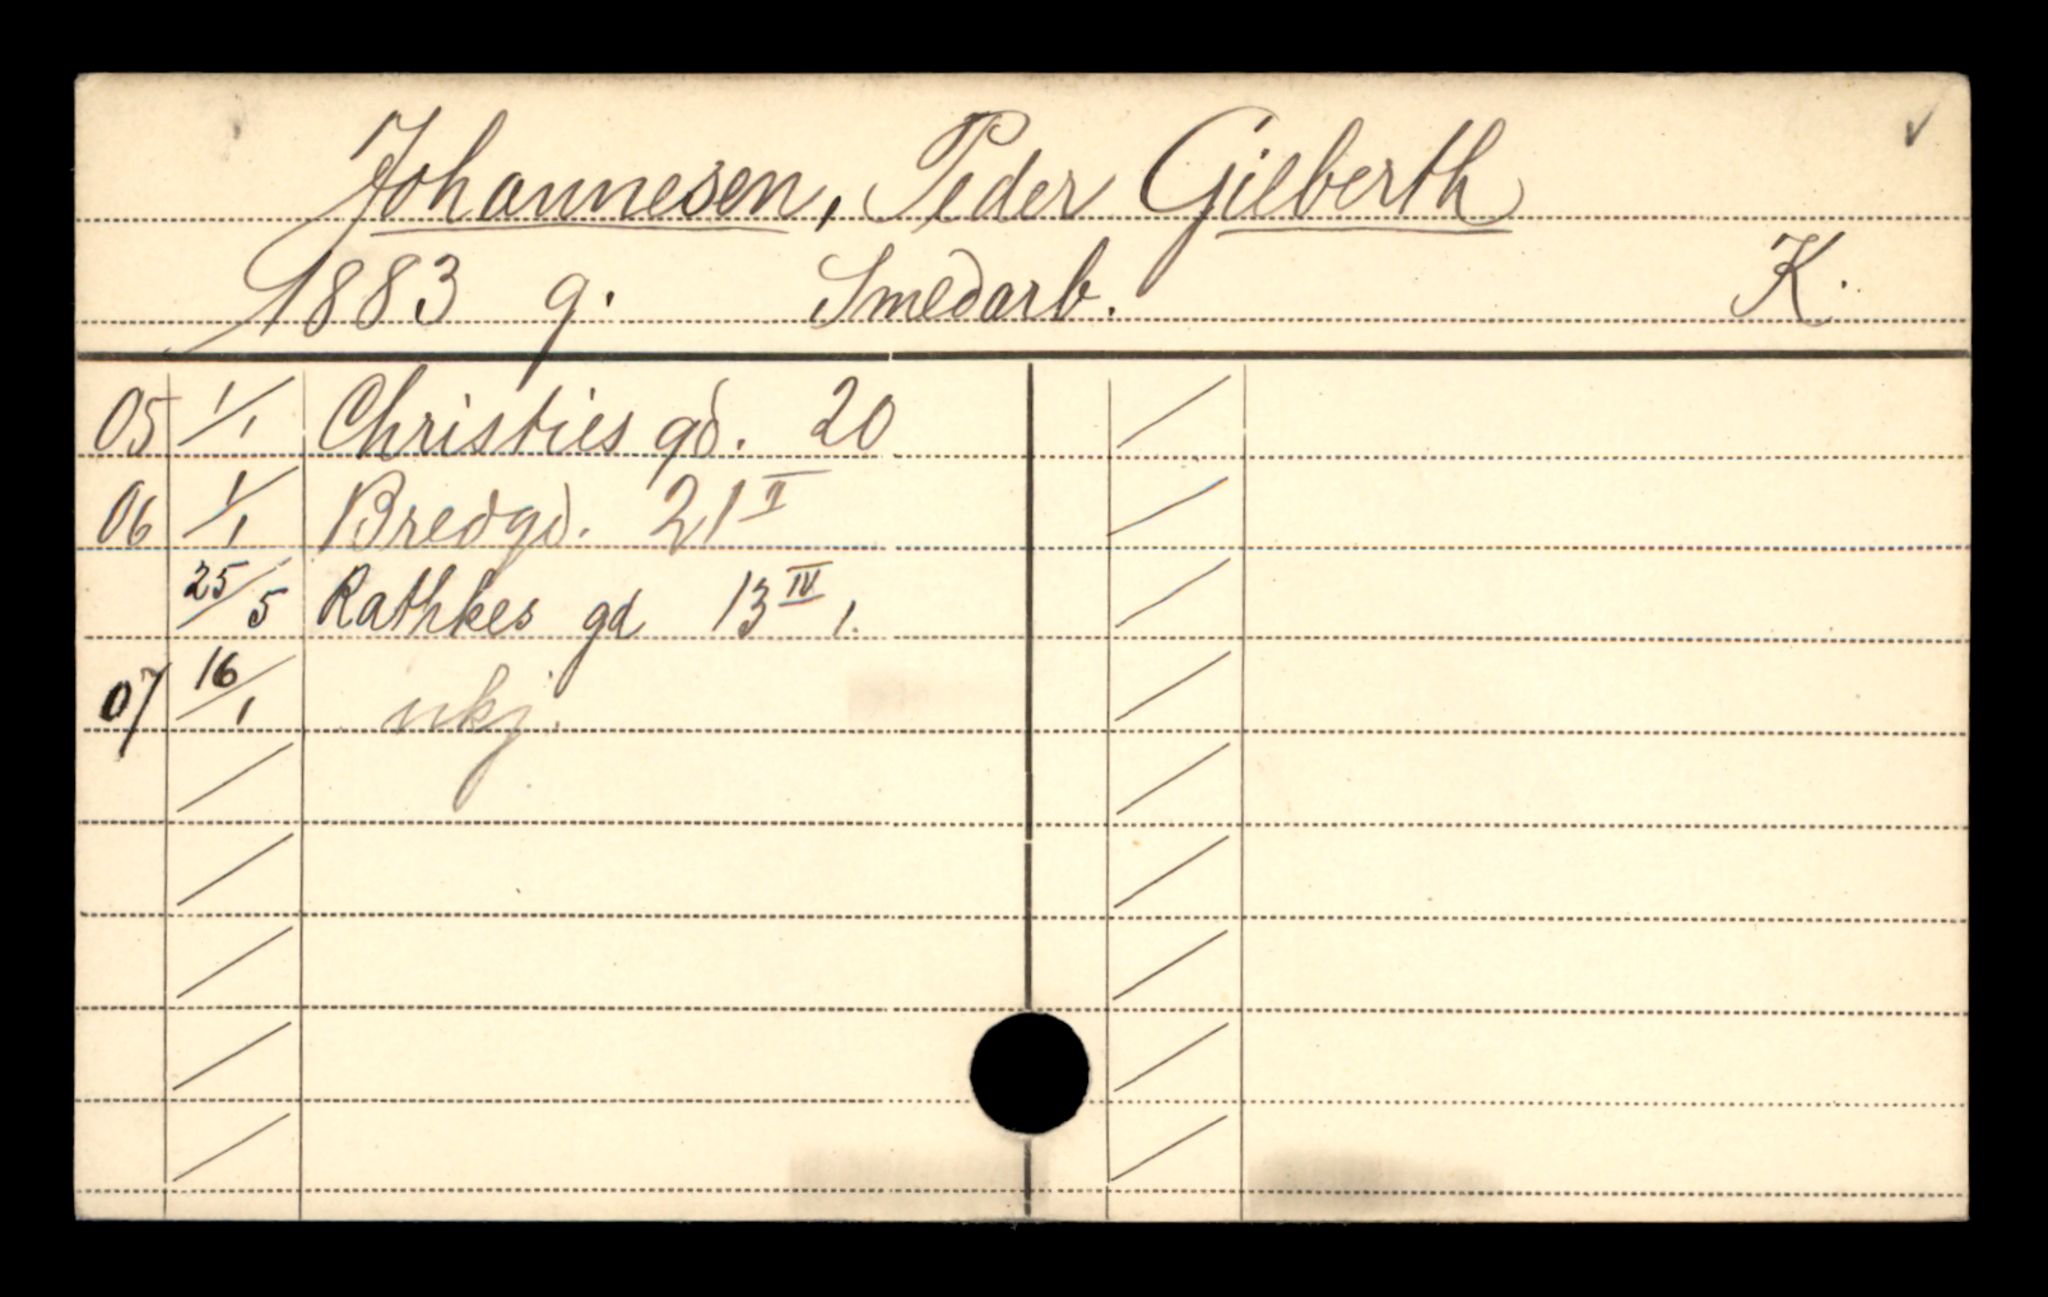 Johannesen, Peder Gilberth
1883 g. Smedarb. K.
05 1/1 Christies gd. 20
06 1/1 Bredgd. 21 II
25/5 Rathkes gd 13 IV 1.
07 16/1